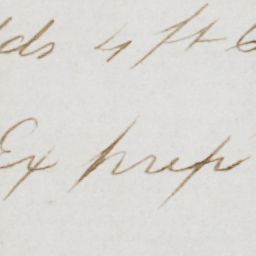 ds 4 ft 6
Ex prep